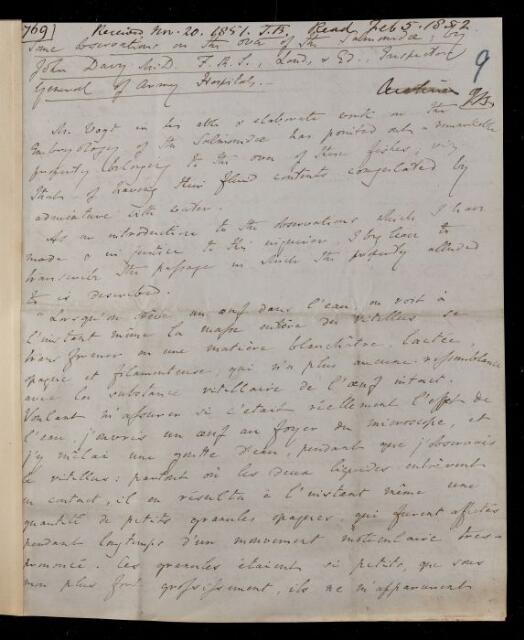 769) Received Nov. 20. 1851. T.B. Read Feb 5. 1852.
Some observations on the ova of the Salmonidae, by
John Davy M.D. F.R.S., Lond, & Ed, Inspector
General of Army Hospitals. —
9
Archives
Mr. Vogt in his able & elaborate work on the
Embryology of the Salmonidae has pointed out a remarkable
property belonging to the ova of these fishes; viz
that of having their fluid contents coagulated by
admixture with water.
As an introduction to the observations which I have
made & in justice to this inquirer, I beg leave to
transcribe the passage in which the property alluded
to is described.
"Lorsqu'on crève un œuf dans l'eau, on voit à
l'instant même la masse entière du vitellus se
transformer en une matière blanchâtre, lactée,
opaque et filamenteuse, qui n'a plus aucune ressemblance
avec la substance vitellaire de l'œuf intact.
Voulant m'assurer si c'était réellement l'effet de
l'eau, j'ouvris un œuf au foyer du microscope, et
j'y mêlai une goutte d'eau, pendant que j'observais
le vitellus: partout où les deux liquides entrèrent
en contact, il en résulta à l'instant même une
quantité de petits granules opaques, qui furent affectés
pendant longtemps d'un mouvement moléculaire très-
prononcé. Ces granules étaient si petits, que sous
mon plus fort grossissement, ils ne m'apparurent